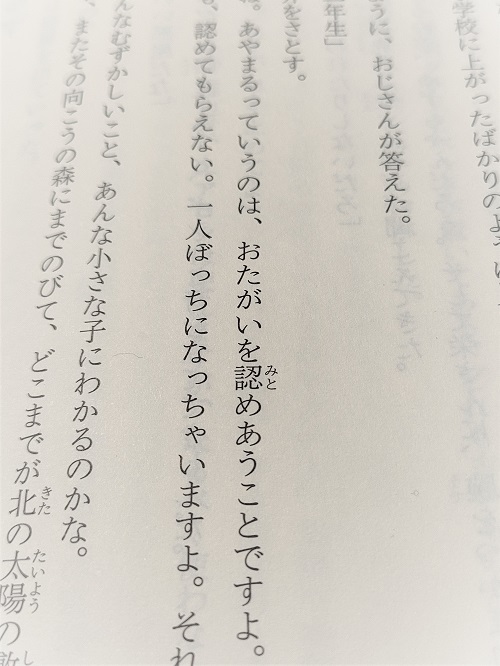 学校に上がったばかりのよう
うに、おじさんが答えた。
年生」
をさとす。
。あやまるっていうのは、おたがいを認めあうことですよ。
みと
も、認めてもらえない。一人ぼっちになっちゃいますよ。それ
んなむずかしいこと、あんな小さな子にわかるのかな。
、またその向こうの森にまでのびて、どこまでが北の太陽の
きた
たいよう